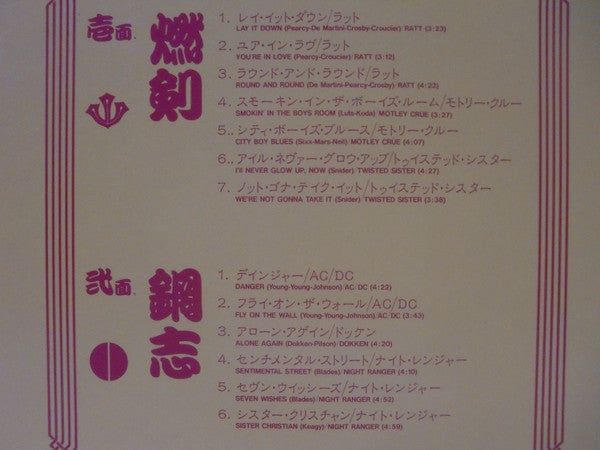 壱面.
燃剣
1. レイ・イット・ダウン/ラット
LAY IT DOWN (Pearcy-De Martini-Crosby-Croucier) RATT (3:23)
2. ユア・イン・ラヴ/ラット
YOU'RE IN LOVE (Pearcy-Croucier) RATT (3:12)
3. ラウンド・アンド・ラウンド/ラット
ROUND AND ROUND (De Martini-Pearcy-Crosby) RATT (4:22)
4. スモーキン・イン・ザ・ボーイズ・ルーム/モトリー・クルー
SMOKIN' IN THE BOYS ROOM (Luts-Koda) MOTLEY CRUE (3:27)
5. シティ・ボーイズ・ブルース/モトリー・クルー
CITY BOY BLUES (Sixx-Mars-Neil) MOTLEY CRUE (4:07)
6. アイル・ネヴァー・グロウ・アップ/トゥイステッド・シスター
I'll NEVER GLOW UP, NOW (Snider) TWISTED SISTER (4:27)
7. ノット・ゴナ・テイク・イット/トゥイステッド・シスター
WE'RE NOT GONNA TAKE IT (Snider) TWISTED SISTER (3:38)
弐面.
鋼志
1. デインジャー/AC/DC
DANGER (Young-Young-Johnson) AC/DC (4:22)
2. フライ・オン・ザ・ウォール/AC/DC
FLY ON THE WALL (Young-Young-Johnson) AC/DC (3:43)
3. アローン・アゲイン/ドッケン
ALONE AGAIN (Dokken-Pilson) DOKKEN (4:20)
4. センチメンタル・ストリート/ナイト・レンジャー
SENTIMENTAL STREET (Blades)/NIGHT RANGER (4:10)
5. セヴン・ウイッシーズ/ナイト・レンジャー
SEVEN WISHES (Blades)/NIGHT RANGER (4:52)
6. シスター・クリスチャン/ナイト・レンジャー
SISTER CHRISTIAN (Keagy)/NIGHT RANGER (4:59)